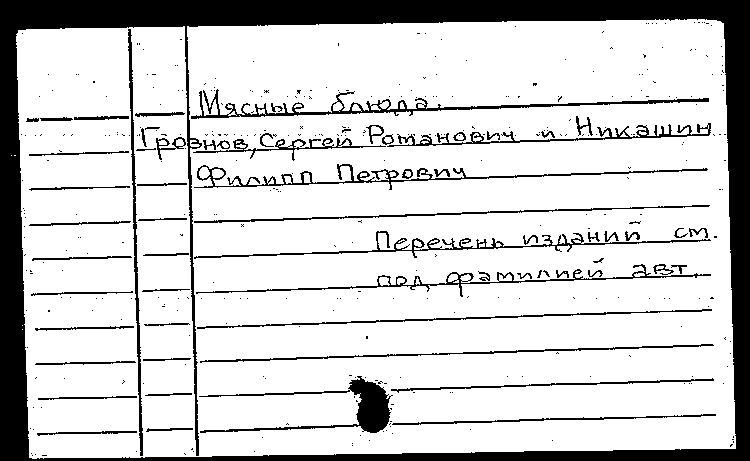 Мясные блюда.
Грознов, Сергей Романович и Никашин
Филипп Петрович
Перечень изданий см.
под фамилией авт.